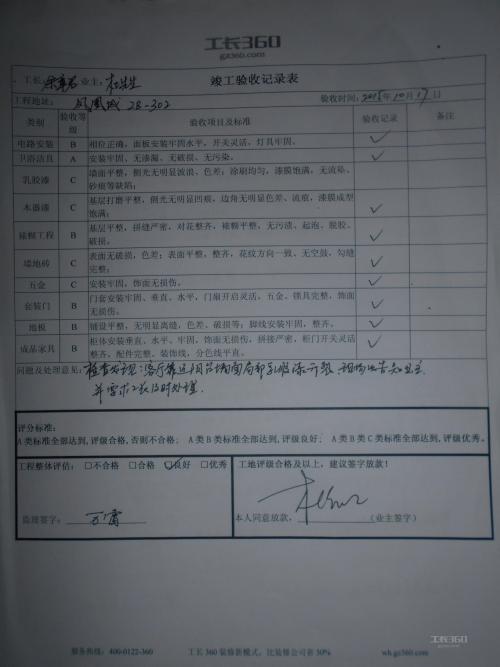 工长360
gz360.com
竣工验收记录表
工长: 业主: 杜先生
工程地址: 凤凰城 28-302 验收时间: 2015年10月17日
类别 验收等级 验收项目及标准 验收记录 备注
电路安装 B 相位正确，面板安装牢固水平，开关灵活、灯具牢固。 ✓
卫浴洁具 A 安装牢固、无渗漏、无破损、无污染。 ✓
乳胶漆 C 墙面平整，侧光无明显波浪、色差；涂刷均匀，漆膜饱满，无流坠、
砂痕等缺陷；
木器漆 C 基层打磨平整，侧光无明显凹痕，边角无明显色差、流痕，漆膜成型
饱满； ✓
裱糊工程 B 基层平整，拼缝严密，对花整齐，裱糊平整，无污渍、起泡、脱胶、
破损。 ✓
墙地砖 C 表面无破损，色差；表面平整，整齐，花纹方向一致、无空鼓，勾缝
完整； ✓
五金 C 安装牢固，饰面无损伤。 ✓
套装门 B 门套安装牢固、垂直、水平，门扇开启灵活、五金、锁具完整，饰面
无损伤。 ✓
地板 B 铺设平整，无明显离缝，色差、破损等；脚线安装牢固，整齐。 ✓
成品家具 B 柜体安装垂直、水平、牢固、饰面无损伤，拼接严密，柜门开关灵活
整齐，配件完整，装饰线，分色线平直。 ✓
问题及处理意见: 检查发现:客厅靠近阳台墙面局部乳胶漆开裂 现场已告知业主
并要求工长及时处理
评分标准:
A类标准全部达到,评级合格,否则不合格; A类B类标准全部达到,评级良好; A类B类C类标准全部达到,评级优秀。
工程整体评估: □不合格 □合格 ☑良好 □优秀
工地评级合格及以上，建议签字放款!
监理签字: 万雷
本人同意放款, (业主签字)
服务热线: 400-0122-360 工长360装修新模式，比装修公司省30% wh.gz360.com
工长360
gz360.com